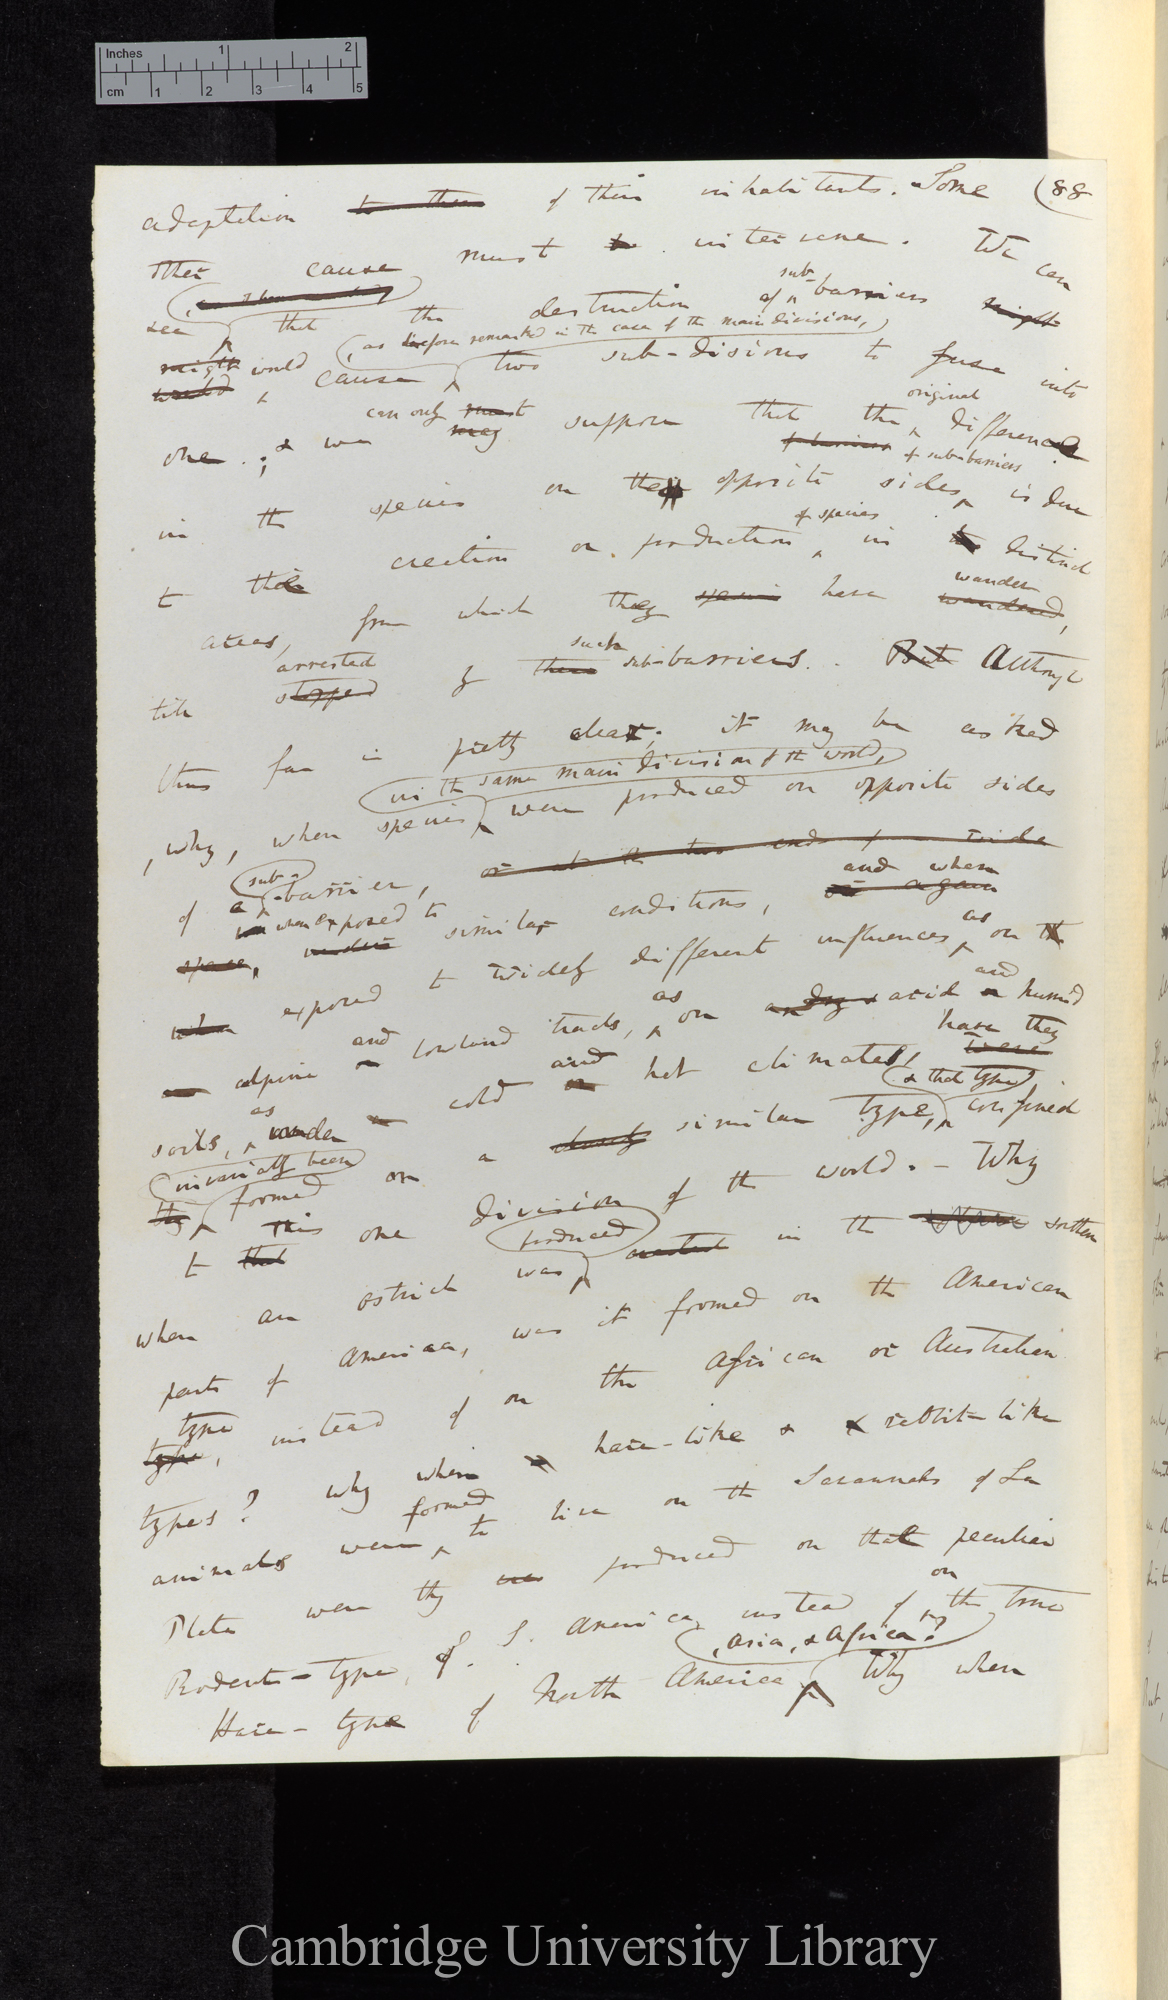 Inches 1 2
cm 1 2 3 4 5
(88
adaptation to them of their inhabitants. Some
other cause must be intervene. We can
see that the destruction of sub-barriers might
might would cause (as before remarked in the case of the main divisions,) two sub-divisions to fuse into
would
one; & we can only must suppose that the original difference
may
in the species on the opposite sides of barriers of sub-barriers, is due
to the creation or production of species in the distinct
areas, from which they species have wander wandered,
till arrested stopped by such these sub-barriers. But Although
thus far is pretty clear; it may be asked
, why, when species in the same main division of the world, were produced on opposite sides
of a sub-barrier, or at the two ends of a wide
space, when exposed to under similar conditions, and when or again
when exposed to widely different influences, as on the
alpine and lowland tracts, as on dry & arid and humid
soils, as under cold and or hot climates, have they were
invariably been formed on a closely similar type, & that type confined
they
to that this one division of the world. – Why
when an ostrich was produced created in the southern
parts of America, was it formed on the American
type type, instead of on the African or Australian
types? Why when hare-like & rabbit-like
animals were formed to live on the Savannahs of La
Plata were they produced on that peculiar
Rodent-type, of S. America, instead of on the true
Hare-type of North America, Asia, & Africa? Why when
Cambridge University Library